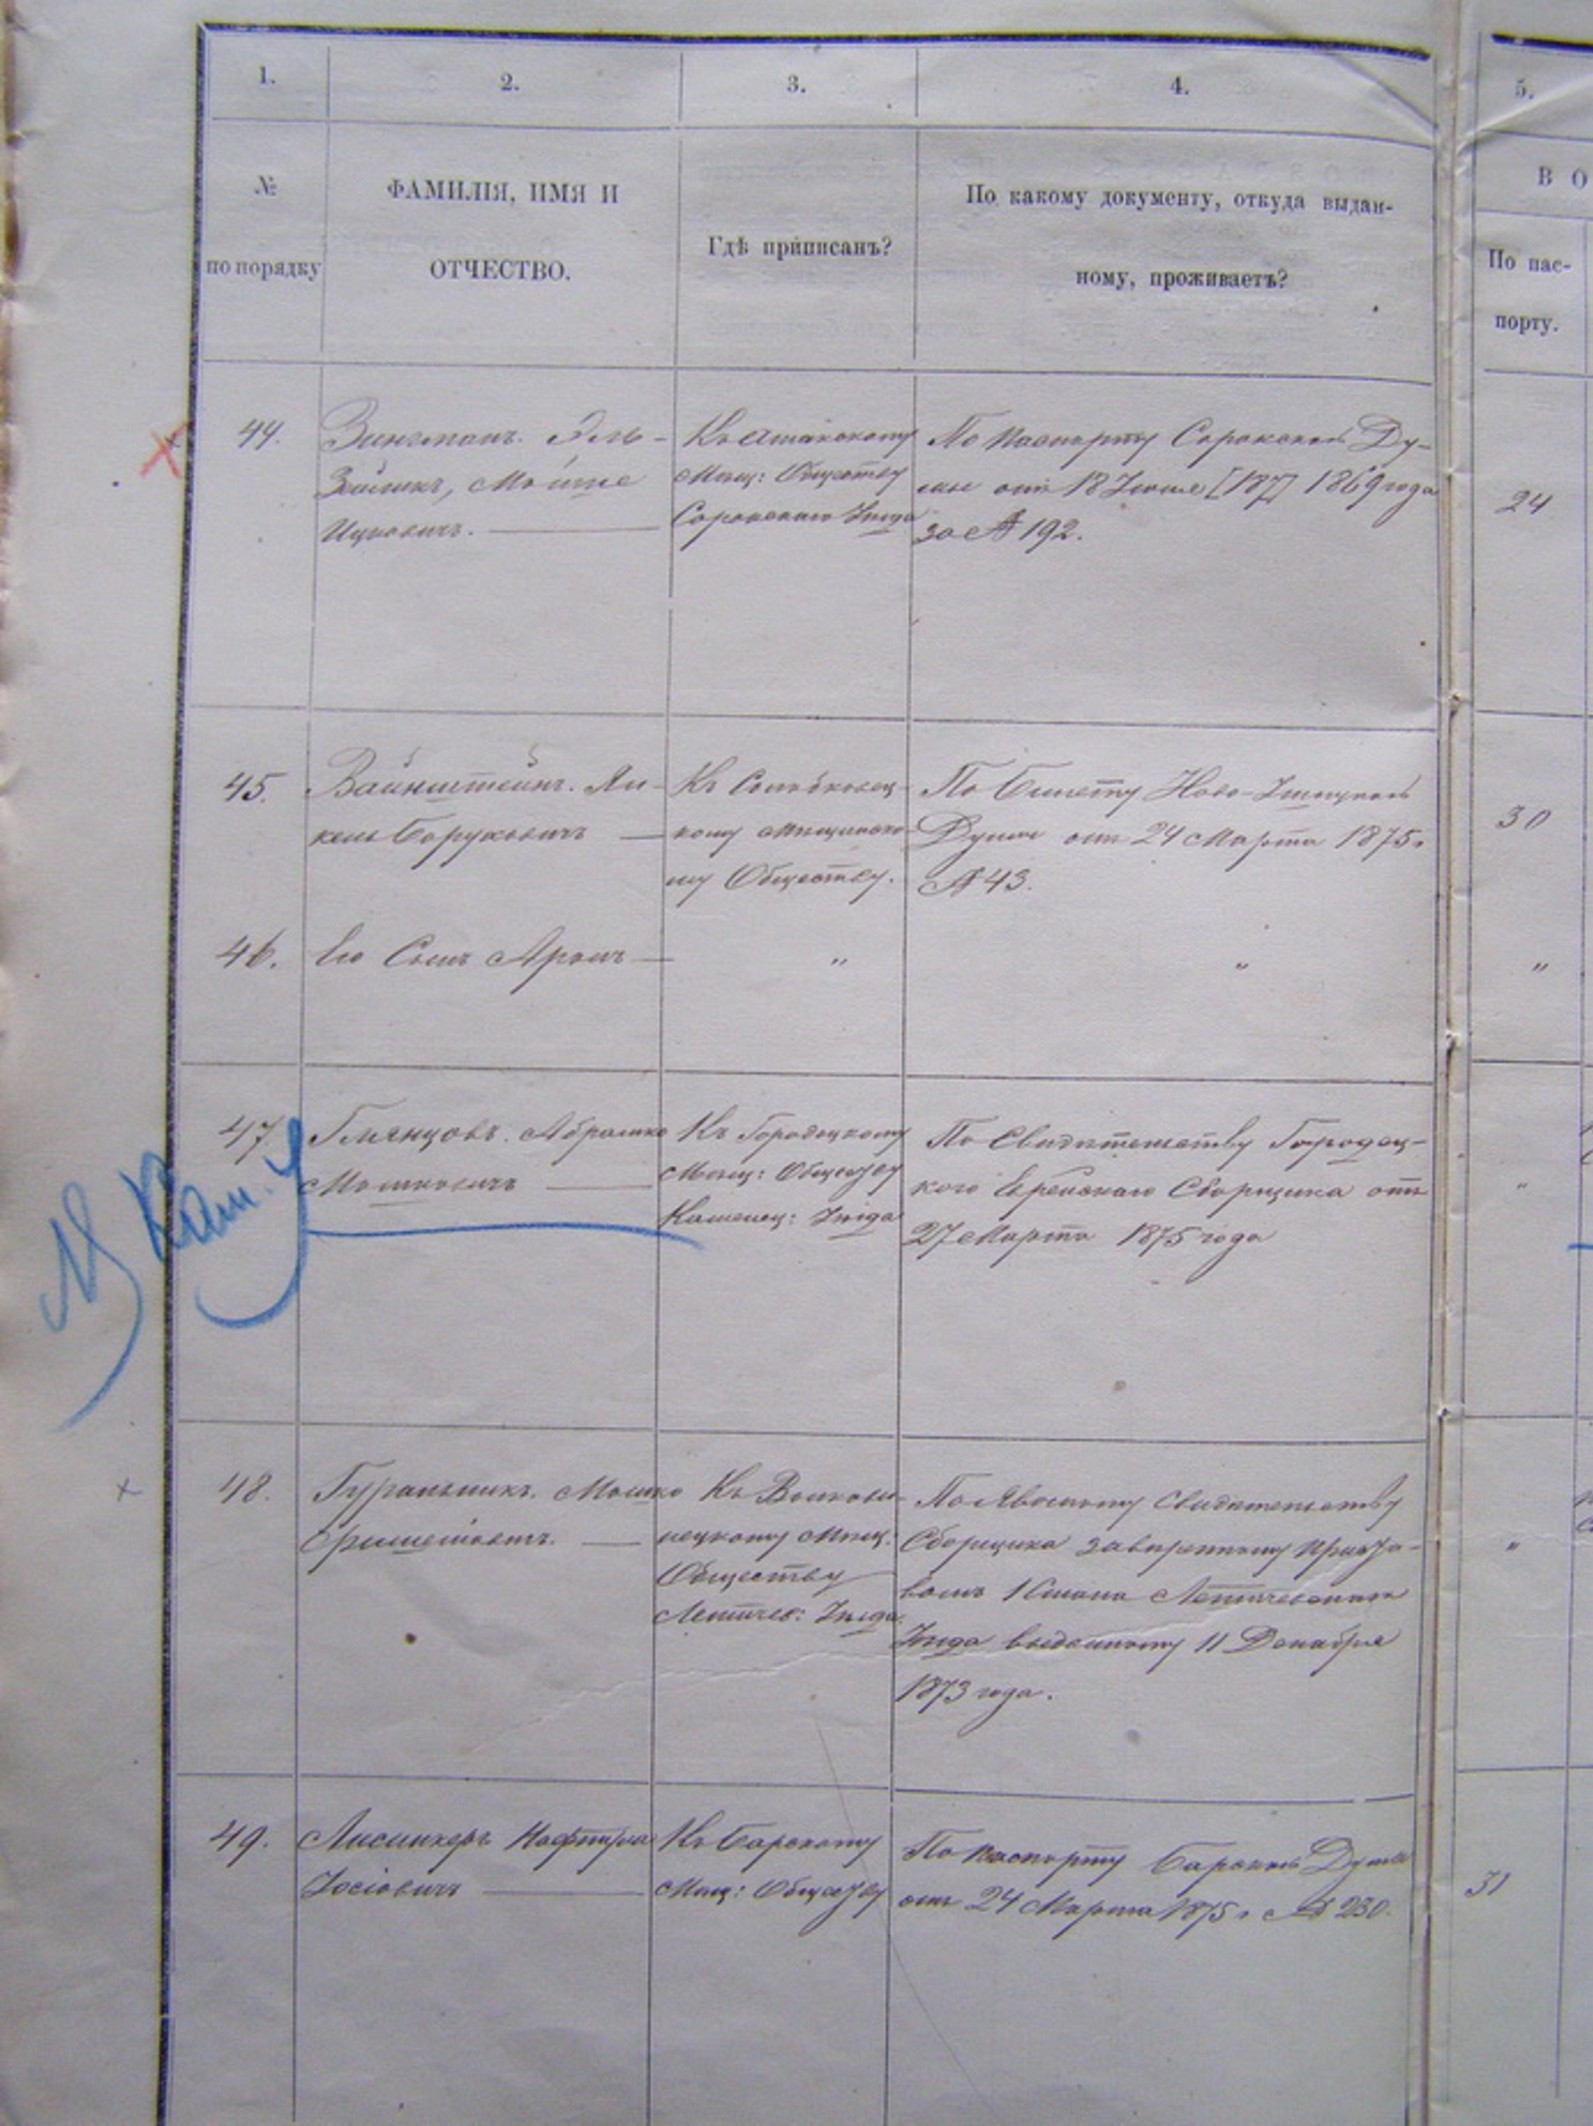 1.
2.
3.
4.
5.
№
по порядку
ФАМИЛІЯ, ИМЯ И
ОТЧЕСТВО.
Гдѣ приписанъ?
По какому документу, откуда выдан-
ному, проживаетъ?
ВО
По пас-
порту.
44.
Эль-
Зейликъ, Мойше
Ицковичъ.
Къ Атакскому
Мѣщ: Обществу
Сорокскаго Уѣзда
По Паспорту Сорокской Ду-
мы отъ 18 Іюля [187] 1869 года
за № 192.
24
45.
Вайнштейнъ. Ян-
кель Боруховичъ
Къ Солобковец-
кому Мѣщанско-
му Обществу.
По Билету Ново-Ушицкой
Думы отъ 24 Марта 1875 г
№ 43.
30
46.
Его Сынъ Аронъ
"
"
"
47.
Глянцовъ. Абрамко
Мошковичъ
Къ Городецкому
Мѣщ: Обществу
Каменец: Уѣзда
По Свидѣтельству Городец-
кого Еврейскаго Сборщика отъ
27 Марта 1875 года
"
Кам. У
48.
Гуральникъ. Мошко
Къ Волкови-
нецкому Мѣщ:
Обществу
Летичев: Уѣзда.
По Явочному Свидѣтельству
Сборщика завѣренному Приста-
вомъ 1 Стана Летичевскаго
Уѣзда выданному 11 Декабря
1873 года.
"
49.
Нафтула
Іосіовичъ
Къ Барскому
Мѣщ: Обществу
По Паспорту Барской Думы
отъ 24 Марта 1875 г № 230.
31